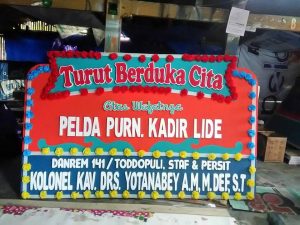 Turut Berduka Cita
Atas Wafatnya
PELDA PURN. KADIR LIDE
DANREM 141 / TODDOPULI, STAF & PERSIT
KOLONEL KAV. DRS. YOTANABEY A.M, M.DEF, S.T